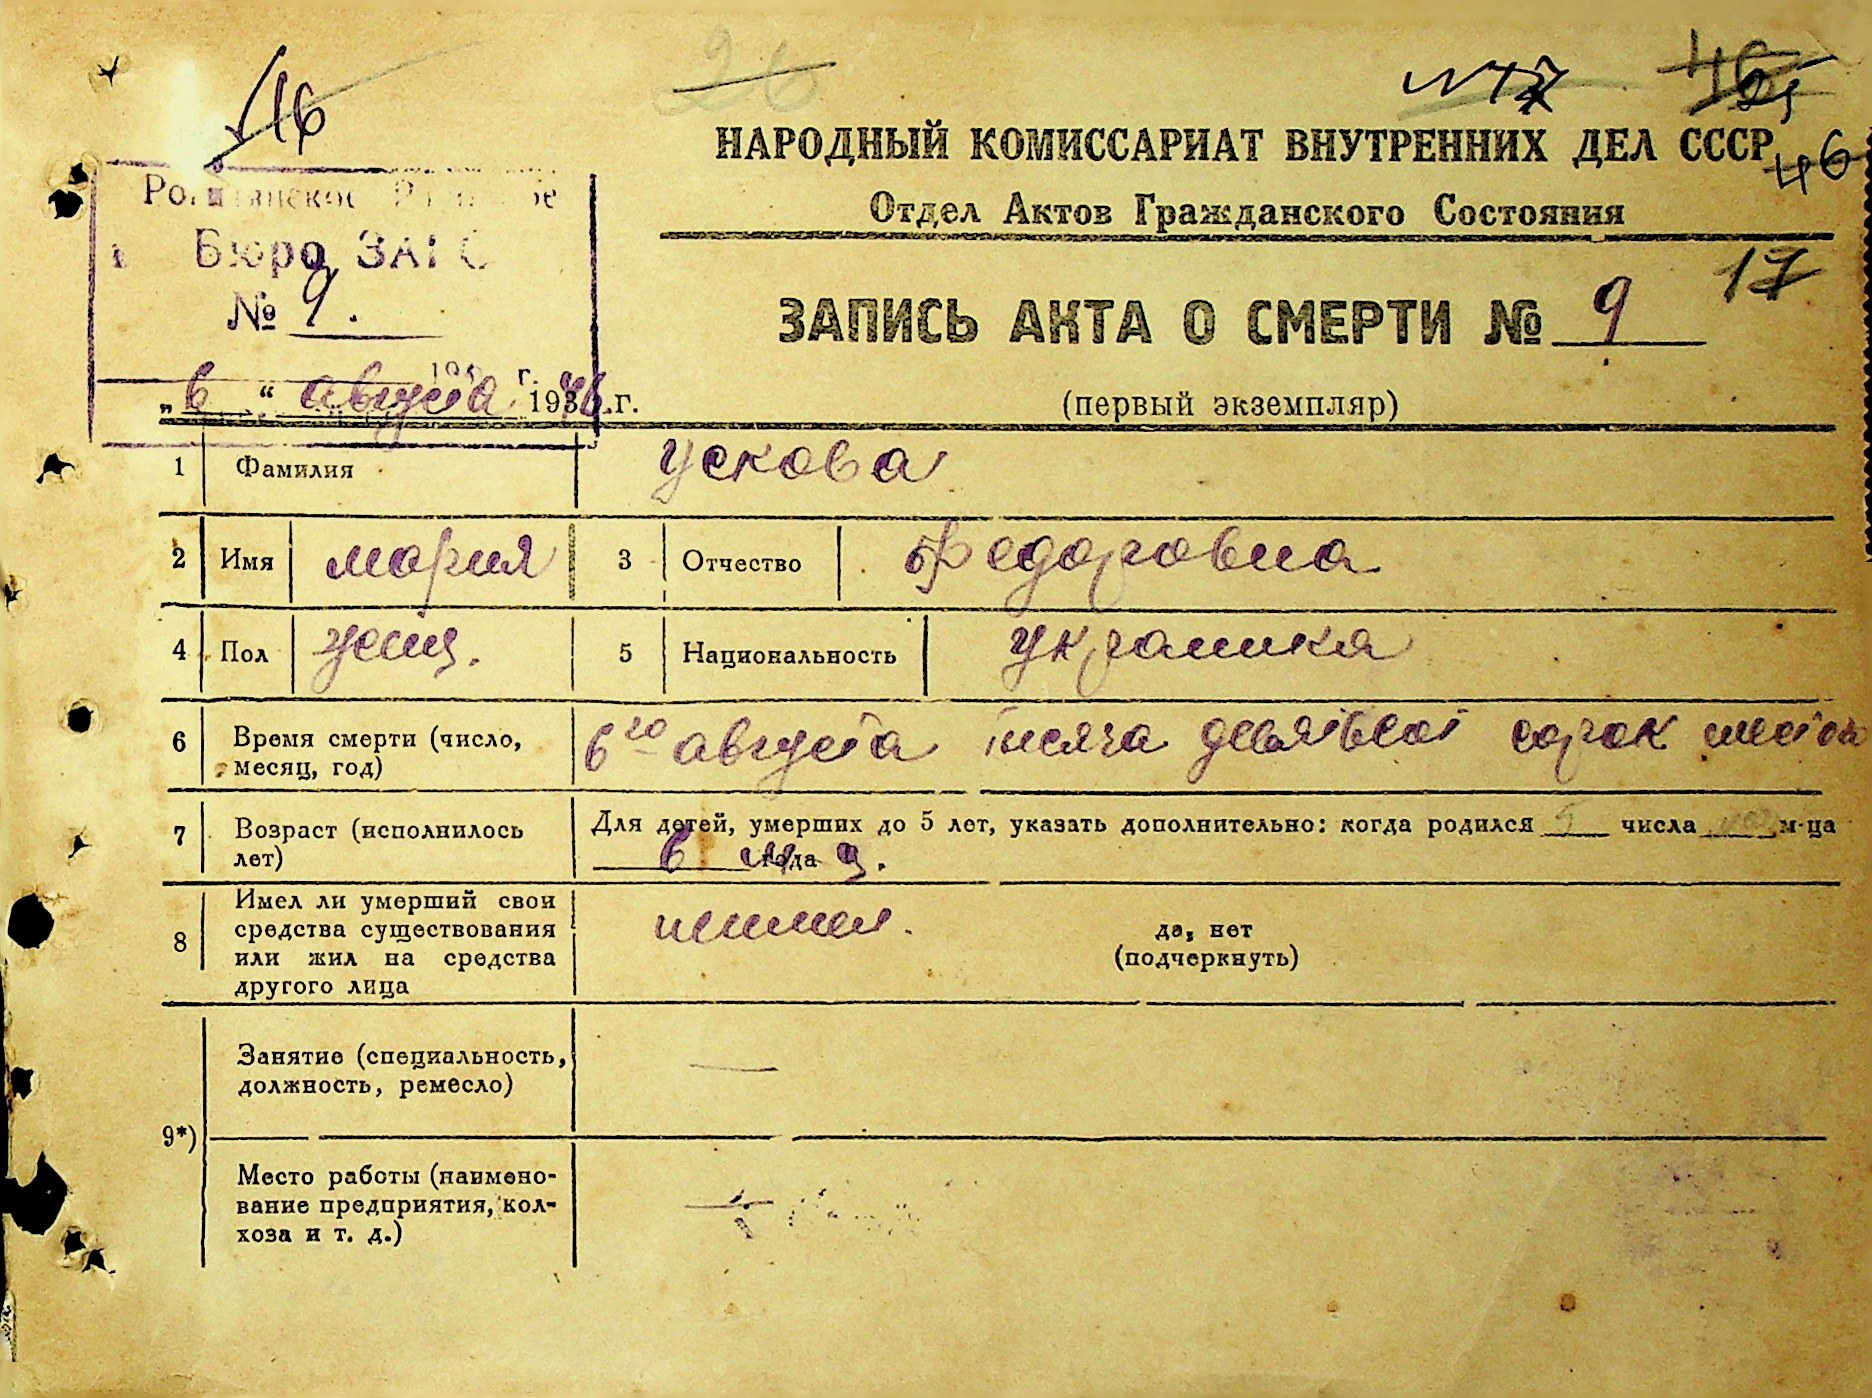 16
26
№ 17
46
25
НАРОДНЫЙ КОМИССАРИАТ ВНУТРЕННИХ ДЕЛ СССР
46
Отдел Актов Гражданского Состояния
Бюро ЗАГС
№ 9.
17
ЗАПИСЬ АКТА О СМЕРТИ № 9
(первый экземпляр)
„6“ августа 1946 г.
1 Фамилия Ускова
2 Имя Мария 3 Отчество Федоровна
4 Пол женщ. 5 Национальность Украинка
6 Время смерти (число, месяц, год) 6го августа тисяча девятьсот сорок шостого
7 Возраст (исполнилось лет) Для детей, умерших до 5 лет, указать дополнительно: когда родился 5 числа м-ца
6 года
8 Имел ли умерший свои
средства существования
или жил на средства
другого лица
неимел.
да, нет
(подчеркнуть)
9*) Занятие (специальность,
должность, ремесло) —
Место работы (наимено-
вание предприятия, кол-
хоза и т. д.) —